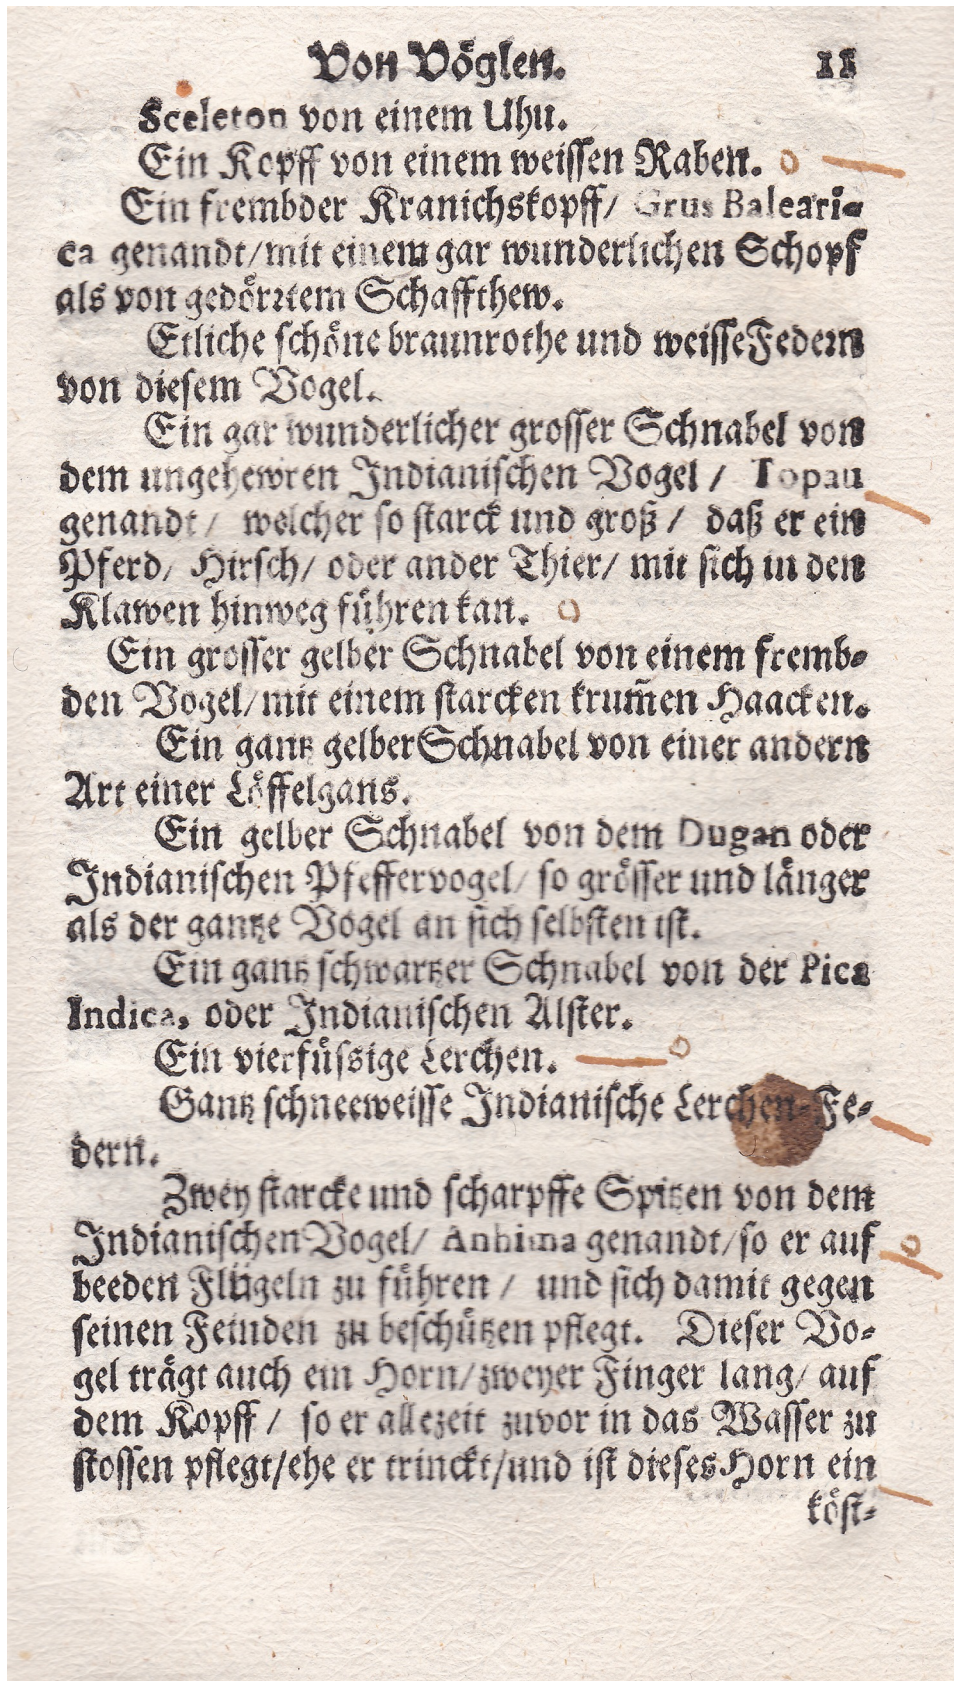 Von Vöglen. 11
Sceleton von einem Uhu.
Ein Kopff von einem weissen Raben.
Ein frembder Kranichskopff/ Grus Baleari-
ca genandt/mit einem gar wunderlichen Schopf
als von gedörrtem Schaffthew.
Etliche schöne braunrothe und weisse Federn
von diesem Vogel.
Ein gar wunderlicher grosser Schnabel von
dem ungehewren Indianischen Vogel / Topau
genandt / welcher so starck und groß / daß er ein
Pferd/ Hirsch/ oder ander Thier/ mit sich in den
Klawen hinweg führen kan.
Ein grosser gelber Schnabel von einem fremb-
den Vogel/mit einem starcken krum̃en Haacken.
Ein gantz gelber Schnabel von einer andern
Art einer Löffelgans.
Ein gelber Schnabel von dem Dugan oder
Indianischen Pfeffervogel/ so grösser und länger
als der gantze Vogel an sich selbsten ist.
Ein gantz schwartzer Schnabel von der Pica
Indica, oder Indianischen Alster.
Ein vierfüssige Lerchen.
Gantz schneeweisse Indianische Lerchen-Fe-
dern.
Zwey starcke und scharpffe Spitzen von dem
Indianischen Vogel/ Anhima genandt/so er auf
beeden Flügeln zu führen / und sich damit gegen
seinen Feinden zu beschützen pflegt. Dieser Vo-
gel trägt auch ein Horn/zweyer Finger lang/ auf
dem Kopff / so er allezeit zuvor in das Wasser zu
stossen pflegt/ehe er trinckt/und ist dieses Horn ein
köst-